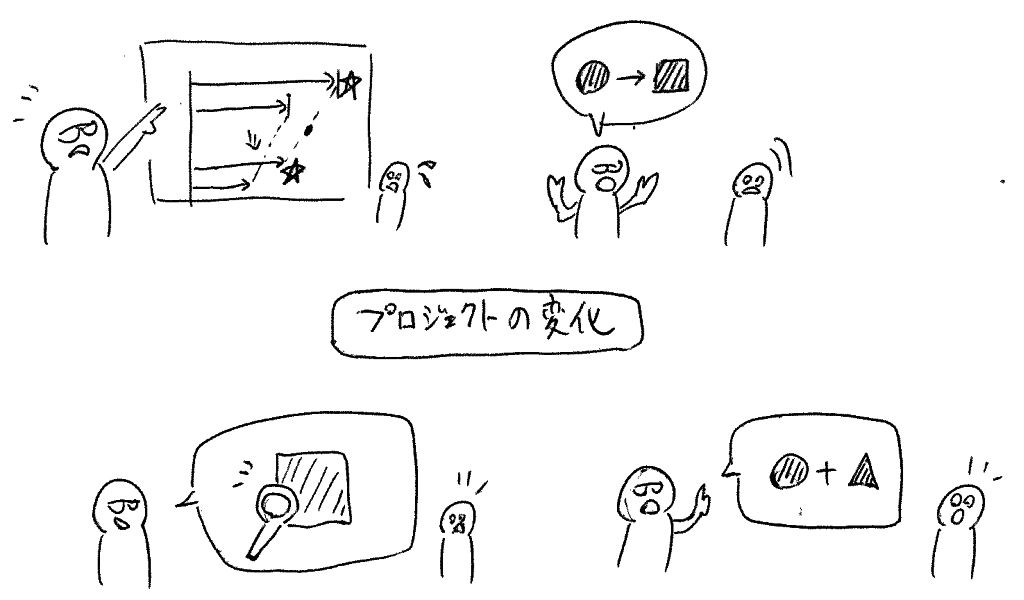 プロジェクトの変化